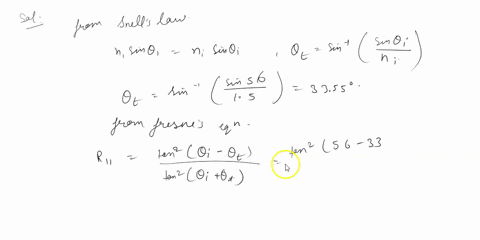 Sol: from Snell's law
n, sinθi = ni sinθi , θt = sin⁻¹ (sinθi / ni)
θt = sin⁻¹ (sin 56 / 1.5) = 33.55°.
from fresnel eqn.
R11 = tan² (θi − θt) / tan² (θi + θt) = tan² (56 − 33